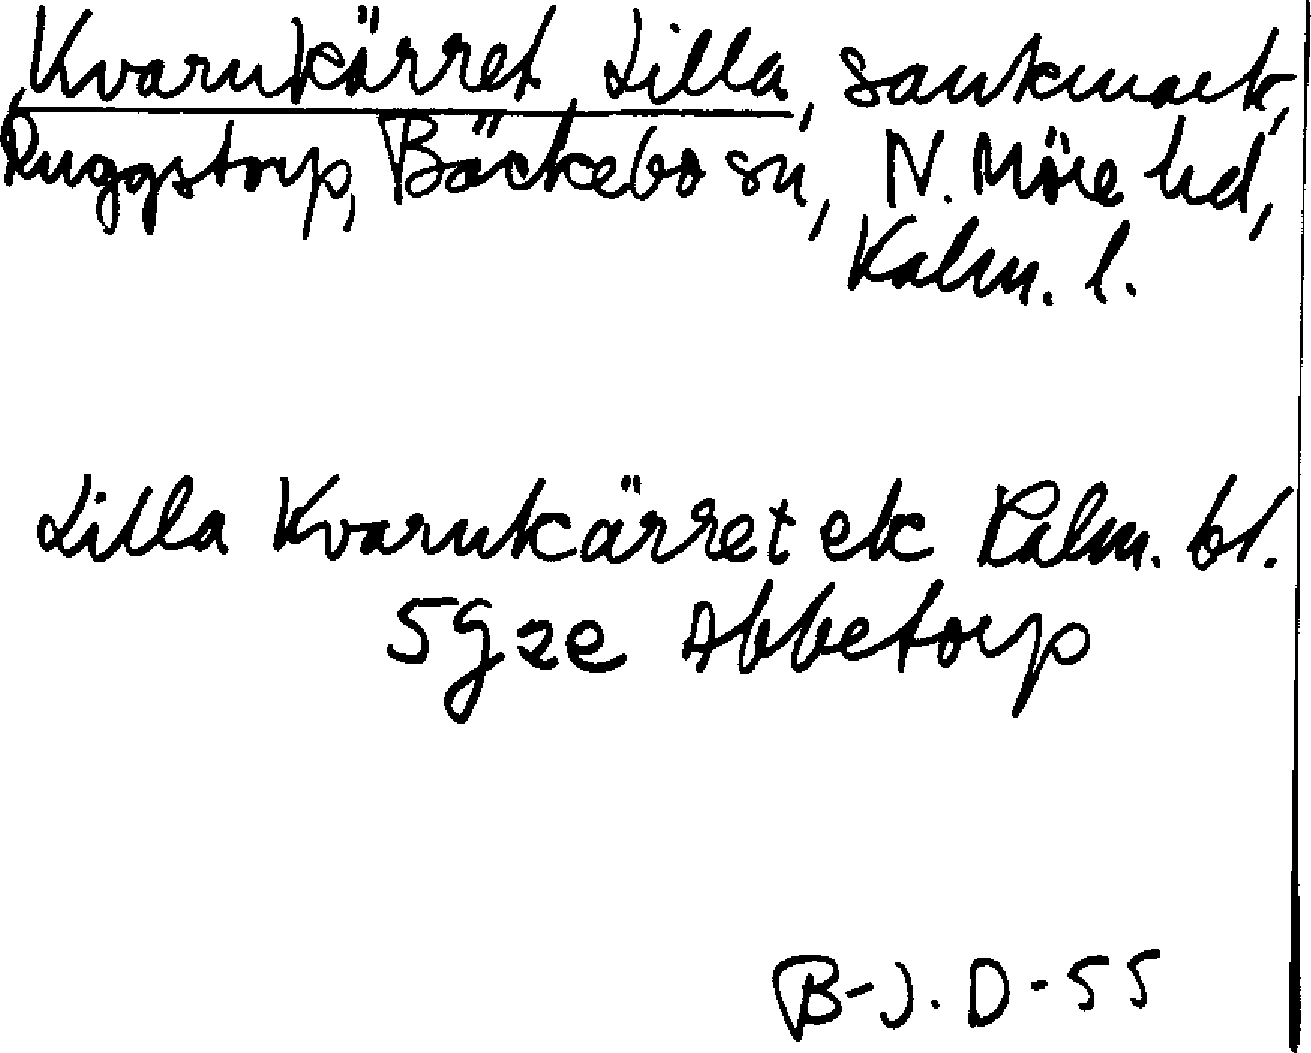 Kvarnkärret, Lilla, sankmark,
Ruggstorp, Bäckebo sn, N. Möre hd,
Kalm. l.
Lilla Kvarnkärret ek Kalm. bl.
5g2e Abbetorp
B-J. D-55